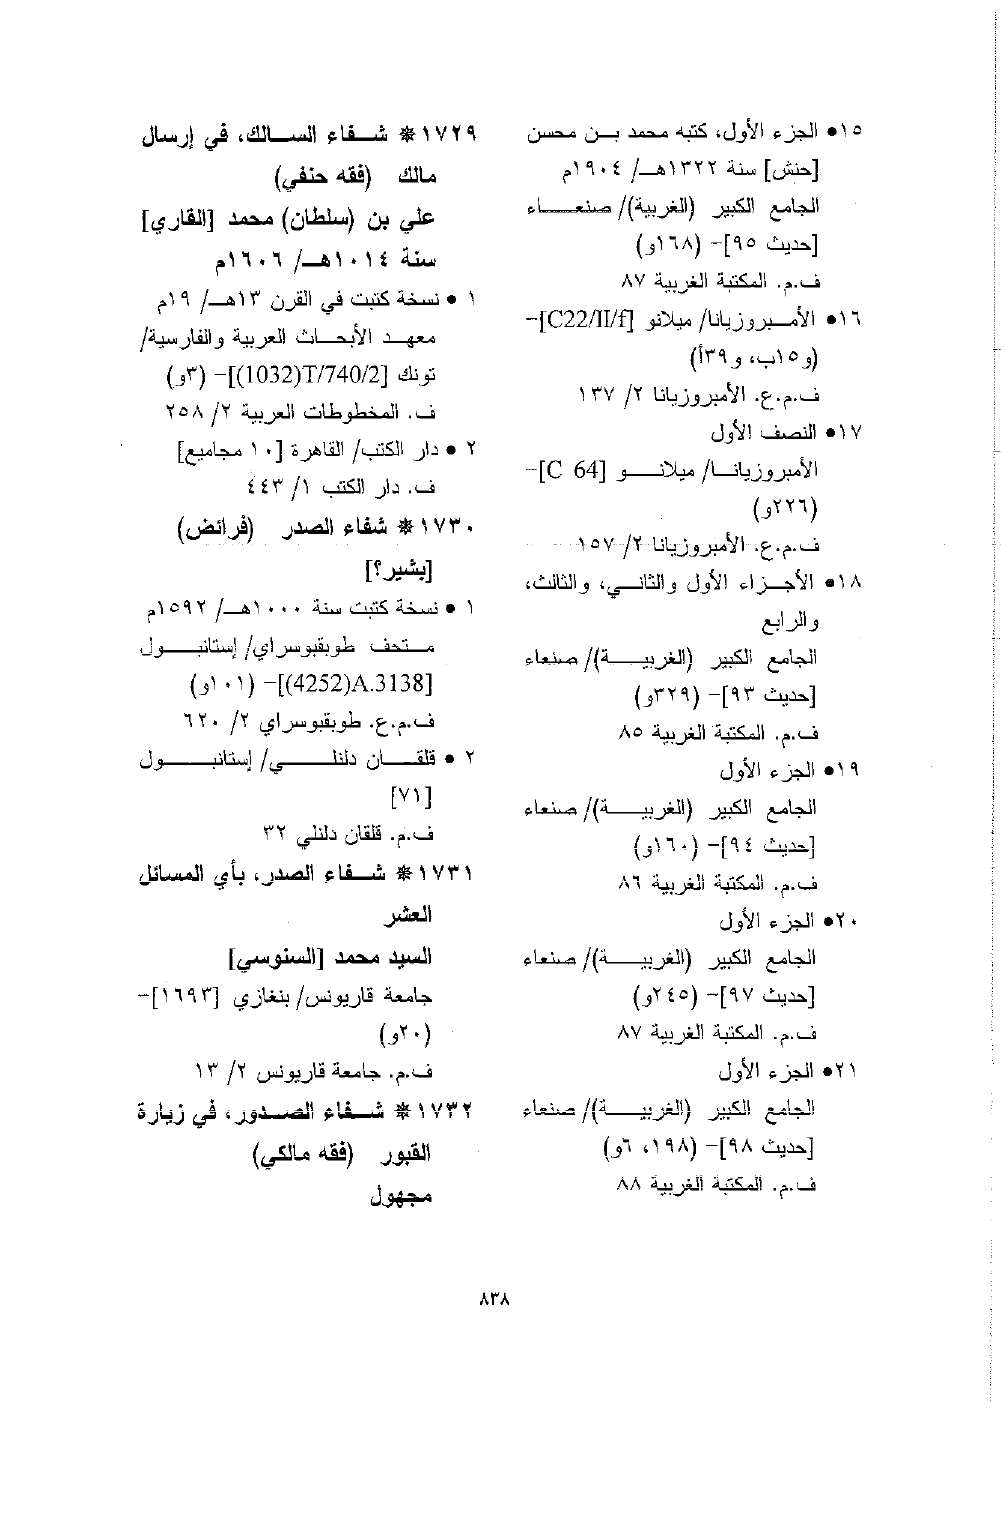 ١٥● الجزء الأول، كتبه محمد بن محسن
[حنش] سنة ١٣٢٢هـ/ ١٩٠٤م
الجامع الكبير (الغربية)/ صنعاء
[حديث ٩٥]- (١٦٨و)
ف.م. المكتبة الغربية ٨٧
١٦● الأمبروزيانا/ ميلانو [C22/II/f]-
(و١٥ب، و٣٩أ)
ف.م.ع. الأمبروزيانا ٢/ ١٣٧
١٧● النصف الأول
الأمبروزيانا/ ميلانو [C 64]-
(٢٢٦و)
ف.م.ع. الأمبروزيانا ٢/ ١٥٧
١٨● الأجزاء الأول والثاني، والثالث،
والرابع
الجامع الكبير (الغربية)/ صنعاء
[حديث ٩٣]- (٣٢٩و)
ف.م. المكتبة الغربية ٨٥
١٩● الجزء الأول
الجامع الكبير (الغربية)/ صنعاء
[حديث ٩٤]- (١٦٠و)
ف.م. المكتبة الغربية ٨٦
٢٠● الجزء الأول
الجامع الكبير (الغربية)/ صنعاء
[حديث ٩٧]- (٢٤٥و)
ف.م. المكتبة الغربية ٨٧
٢١● الجزء الأول
الجامع الكبير (الغربية)/ صنعاء
[حديث ٩٨]- (١٩٨، ٦و)
ف.م. المكتبة الغربية ٨٨
١٧٢٩ ❋ شفاء السالك، في إرسال
مالك (فقه حنفي)
علي بن (سلطان) محمد [القاري]
سنة ١٠١٤هـ/ ١٦٠٦م
١ ● نسخة كتبت في القرن ١٣هـ/ ١٩م
معهد الأبحاث العربية والفارسية/
تونك [T/740/2(1032)]- (٣و)
ف. المخطوطات العربية ٢/ ٢٥٨
٢ ● دار الكتب/ القاهرة [١٠ مجاميع]
ف. دار الكتب ١/ ٤٤٣
١٧٣٠ ❋ شفاء الصدر (فرائض)
[بشير؟]
١ ● نسخة كتبت سنة ١٠٠٠هـ/ ١٥٩٢م
متحف طوبقبوسراي/ إستانبول
[A.3138(4252)]- (١٠١و)
ف.م.ع. طوبقبوسراي ٢/ ٦٢٠
٢ ● قلقان دلنلي/ إستانبول
[٧١]
ف.م. قلقان دلنلي ٣٢
١٧٣١ ❋ شفاء الصدر، بأي المسائل
العشر
السيد محمد [السنوسي]
جامعة قاريونس/ بنغازي [١٦٩٣]-
(٢٠و)
ف.م. جامعة قاريونس ٢/ ١٣
١٧٣٢ ❋ شفاء الصدور، في زيارة
القبور (فقه مالكي)
مجهول
٨٣٨